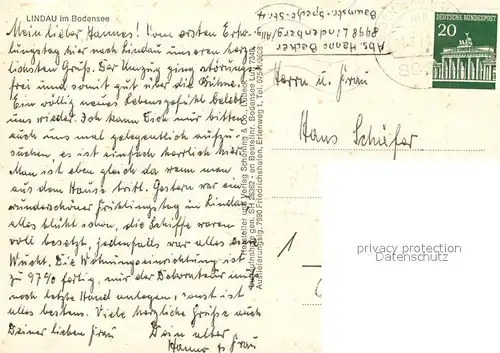 LINDAU im Bodensee
Mein lieber Hannes! Vom ersten Erho-
lungstag hier nach Lindau unseren herz-
lichsten Gruß. Der Umzug ging störungs-
frei und somit gut über die Bühne.
Ein völlig neues Lebensgefühl belebt
uns wieder. Ich kann Dich nur bitten
auch uns mal gelegentlich aufzu-
suchen, es ist einfach herrlich hier.
Man ist eben gleich da wenn man
aus dem Hause tritt. Gestern war ein
wunderschöner Frühlingstag in Lindau
alles blüht schon, die Schiffe waren
voll besetzt, jedenfalls war alles eine
Wucht. Die Wohnungseinrichtung ist
zu 97% fertig, nur der Dekorateur muß
noch letzte Hand anlegen, sonst ist
alles bestens. Viele herzliche Grüße auch
Deiner lieben Frau Dein alter
Hanno u Frau
Hersteller und Verlag Schöning & Co., Lübeck
Luftaufnahme gen. SH 28382 - an Bestellnr. Bodensee Luft 7239
Auslieferungslg. 7990 Friedrichshafen, Erlenweg 1, Tel. 07541/6208
Abs. Hanno Becker
8998 Lindenberg/Allg.
Baumstr.-Specht-Str. 4
DEUTSCHE BUNDESPOST
20
Herrn u. Frau
Hans Schäfer
1
privacy protection
Datenschutz